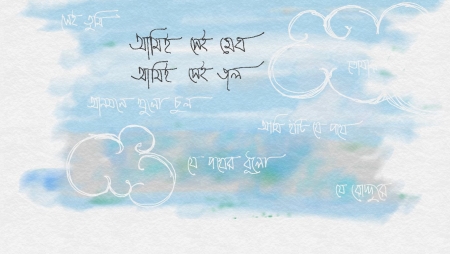 সেই তুমি
আমিই সেই মেঘ
আমিই সেই জল
খোলা চুল
আমি হাঁটি যে পথে
যে পথের ধুলো
যে রোদ্দুরে